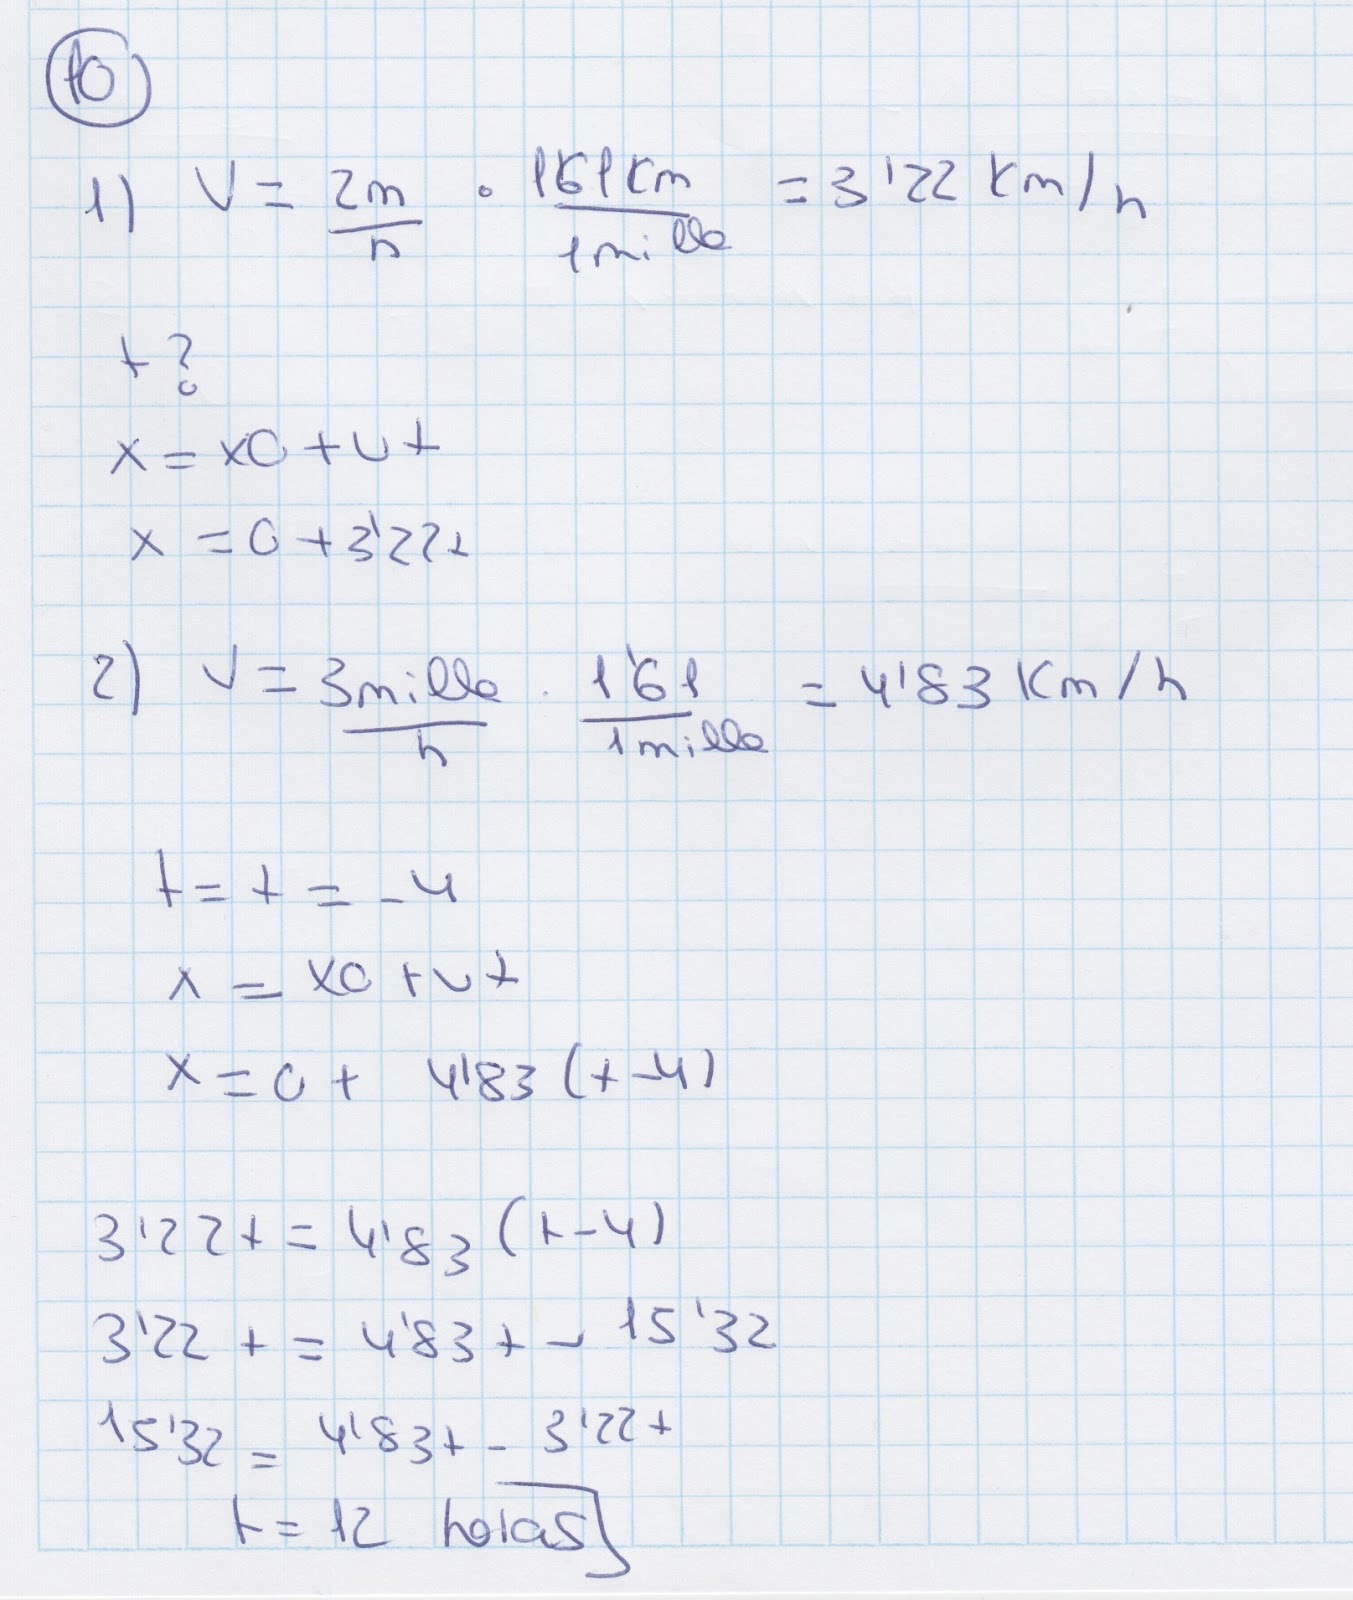 10
1) V = 2m/h · 1'61 Km/1 mille = 3'22 Km/h
t?
x = x0 + vt
x = 0 + 3'22t
2) V = 3 mille/h · 1'61/1 mille = 4'83 Km/h
t = t = -4
x = x0 + vt
x = 0 + 4'83 (t-4)
3'22t = 4'83 (t-4)
3'22 t = 4'83 t - 15'32
15'32 = 4'83t - 3'22t
t = 12 horas